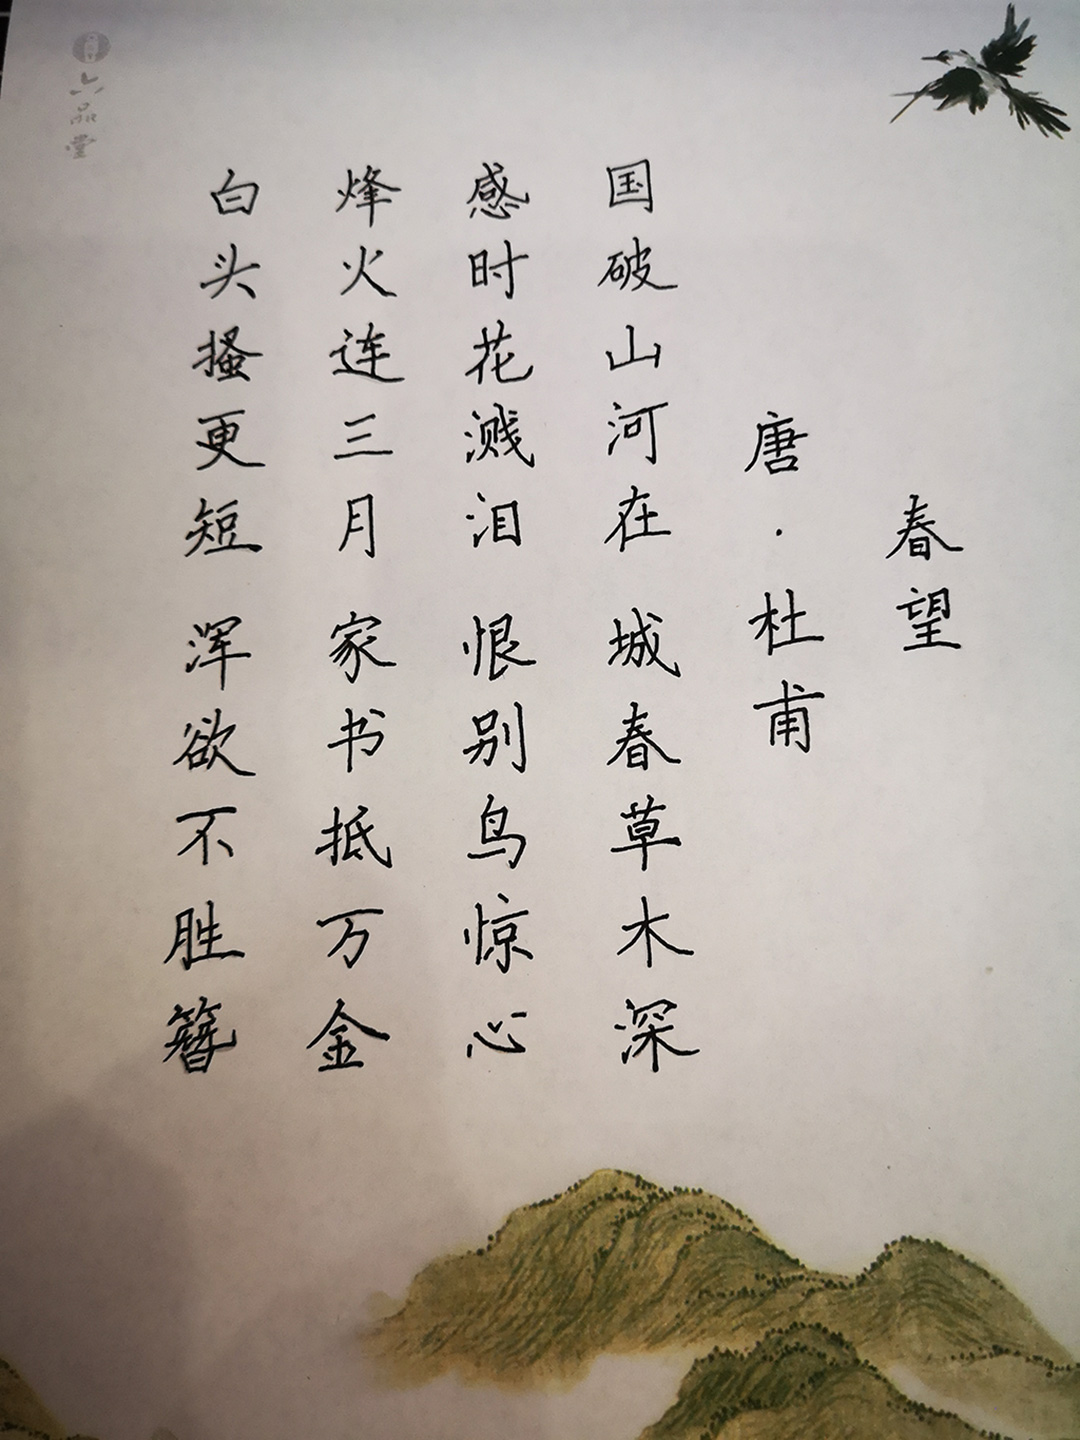 春望
唐·杜甫
国破山河在 城春草木深
感时花溅泪 恨别鸟惊心
烽火连三月 家书抵万金
白头搔更短 浑欲不胜簪
六品堂